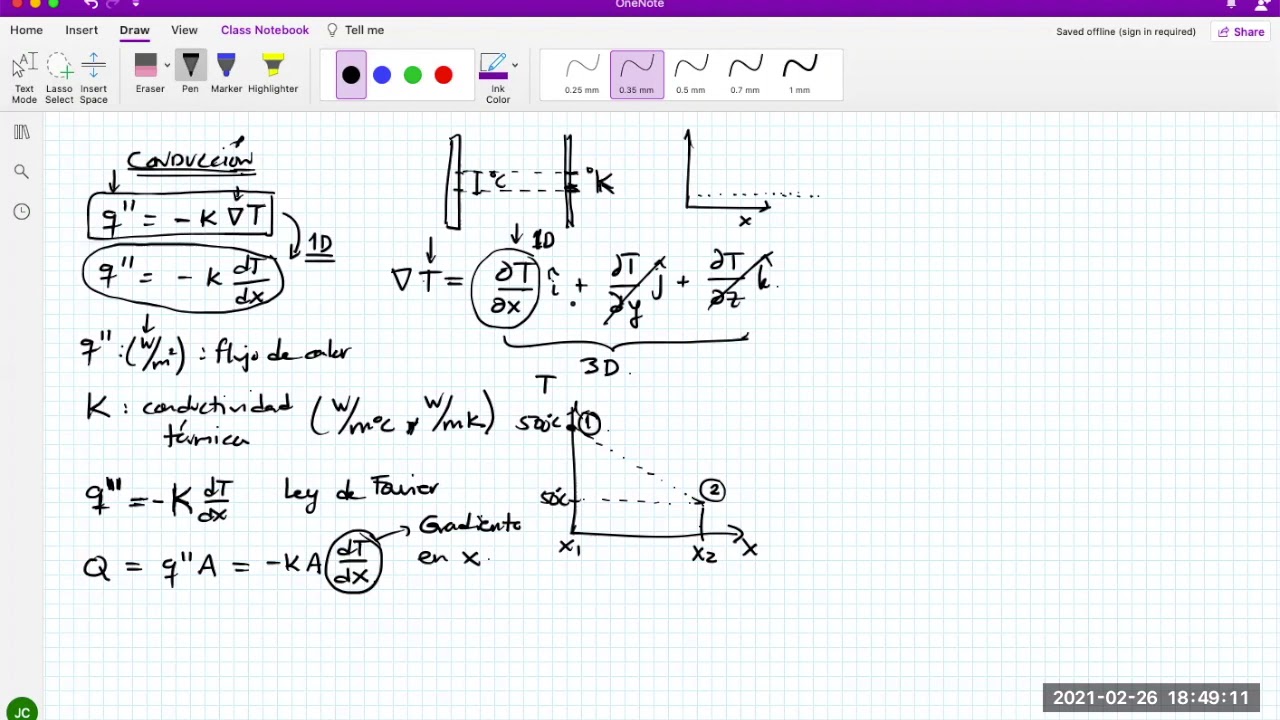 OneNote
Home Insert Draw View Class Notebook Tell me
Saved offline (sign in required) Share
Text Mode
Lasso Select
Insert Space
Eraser
Pen
Marker
Highlighter
Ink Color
0.25 mm
0.35 mm
0.5 mm
0.7 mm
1 mm
CONDUCCIÓN
q'' = - K ∇T
1D
q'' = - K dT/dx
°C
°K
x
1D
∇T = ∂T/∂x î + ∂T/∂y ĵ + ∂T/∂z k̂
3D
q'' : (W/m²) : flujo de calor
K : conductividad térmica (W/m°C, W/mK)
q''' = -K dT/dx Ley de Fourier
Q = q''A = -KA dT/dx
Gradiente
en x.
T
500°C 1
50°C
2
x₁
x₂
x
JC
2021-02-26 18:49:11